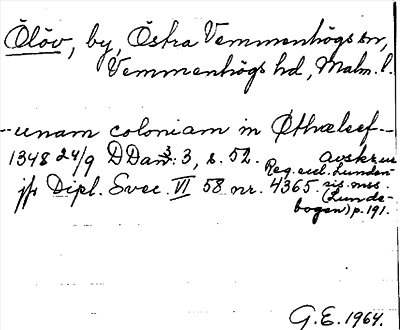 Ölöv, by, Östra Vemmenhögs sn,
Vemmenhögs hd, Malm. l.
--unam coloniam in Øthælef--
1348 24/9 DDan 3: 3, s. 52. Avskr. ur
Reg. eccl. Lunden-
jfr Dipl. Svec. VI 58 nr. 4365. sis. mss.
(Lunde-
bogen) p. 191.
G.E. 1964.